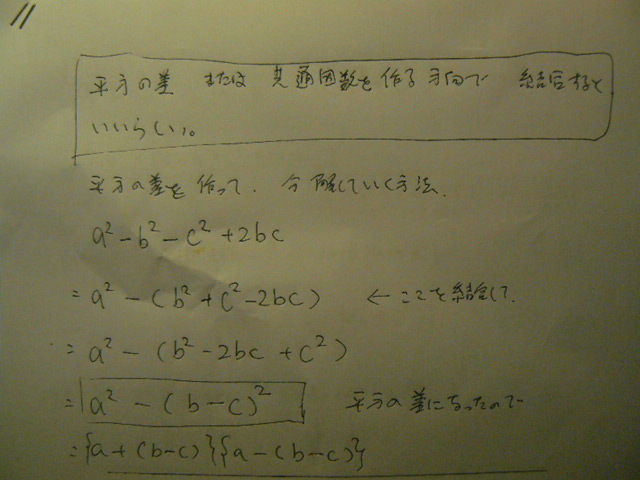 11
平方の差 または 共通因数を作る方向で 結合すると
いいらしい。
平方の差を作って、分解していく方法、
a²-b²-c²+2bc
= a²-(b²+c²-2bc) ← ここを結合して、
= a²-(b²-2bc+c²)
= a²-(b-c)² 平方の差になったので
= {a+(b-c)}{a-(b-c)}